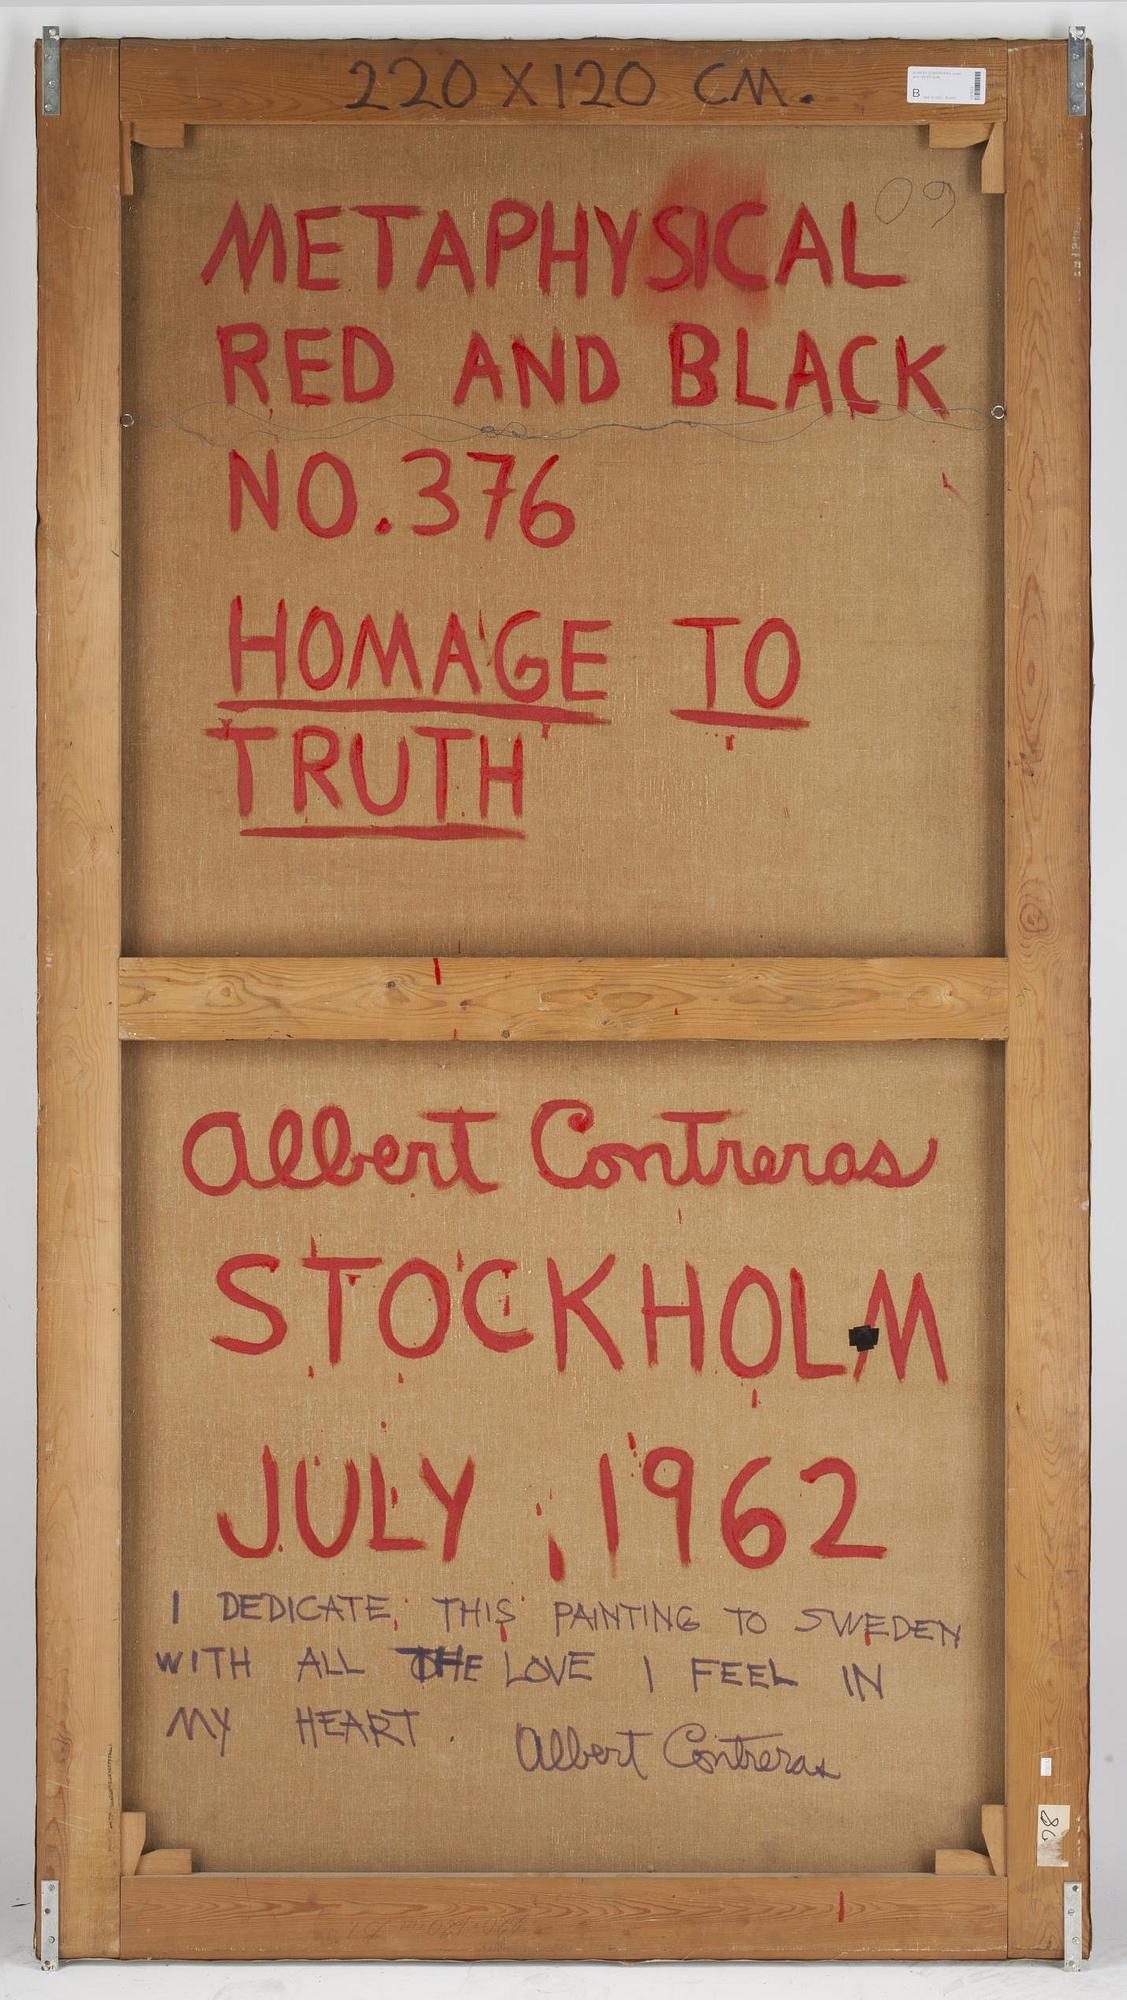 220 X 120 CM.
B
09
METAPHYSICAL
RED AND BLACK
NO. 376
HOMAGE TO
TRUTH
Albert Contreras
STOCKHOLM
JULY, 1962
I DEDICATE THIS PAINTING TO SWEDEN
WITH ALL THE LOVE I FEEL IN
MY HEART. Albert Contreras